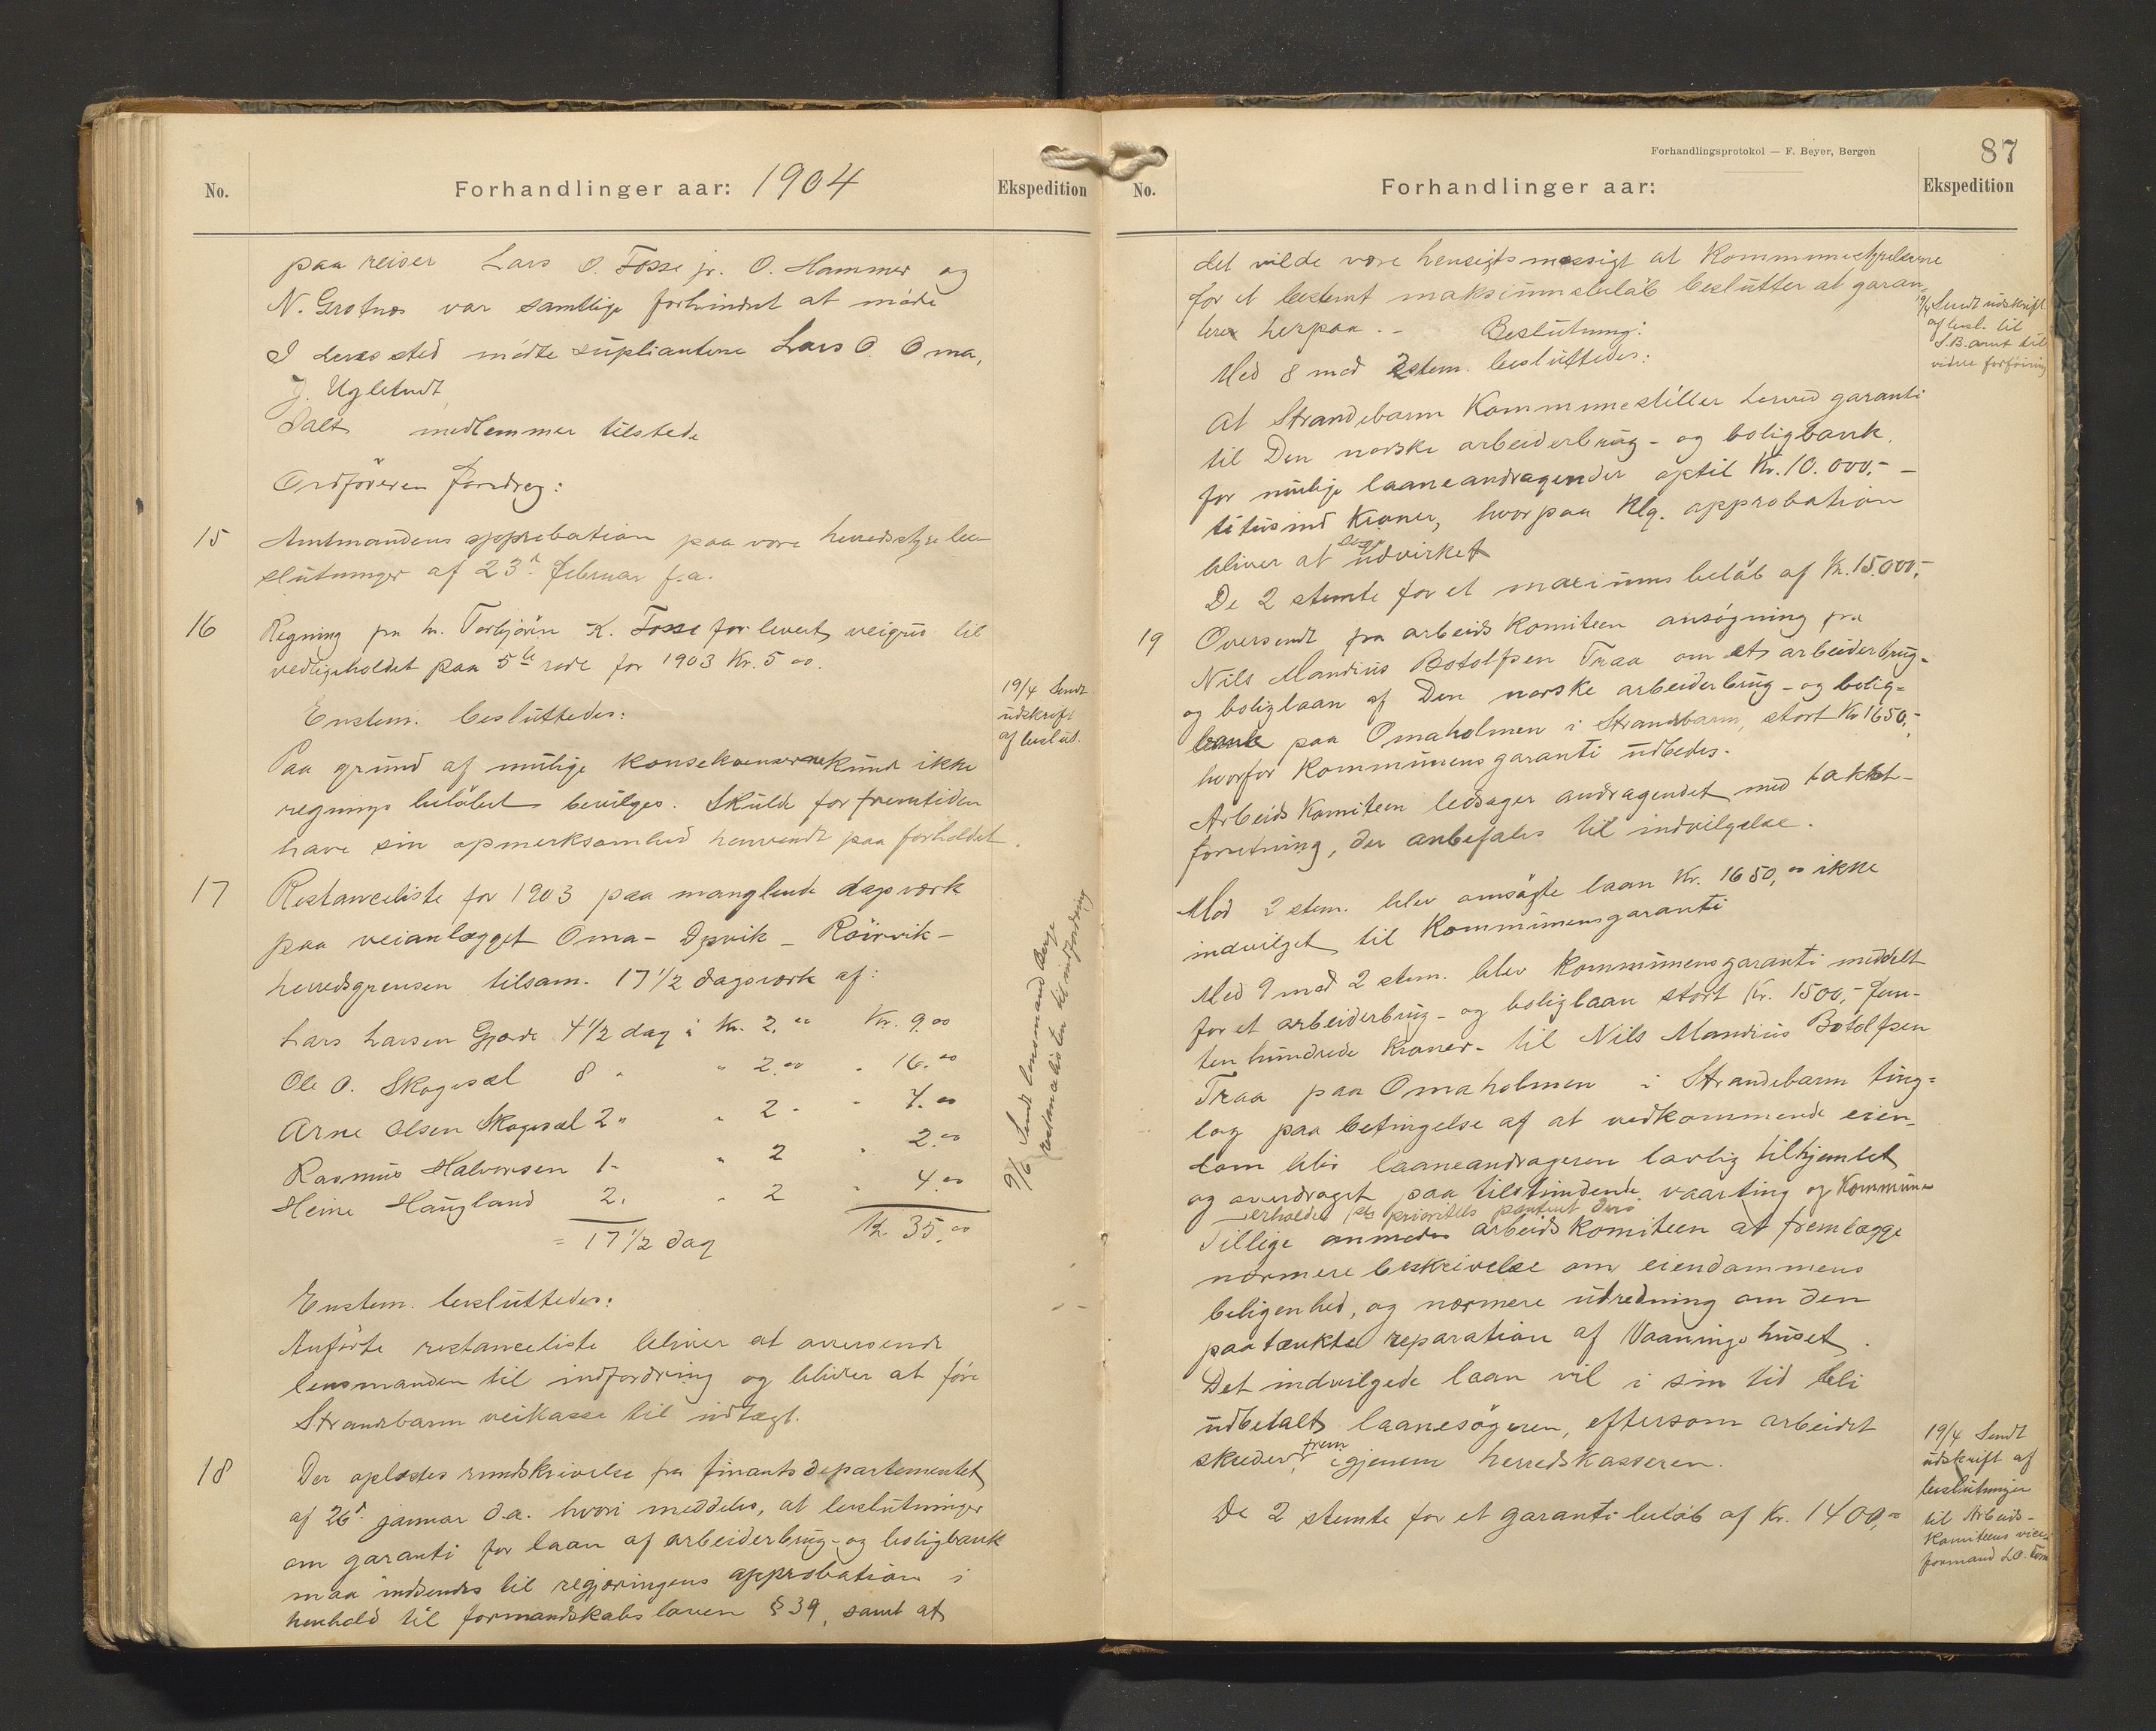 No.
Forhandlinger aar: 1904
Ekspedition
paa reiser Lars O. Fosse jr. O. Hammer og
N. Grotnes var samtlige forhindret at møde
I deres sted mødte supliantene Lars O. Oma,
J. Ugletvedt
Ialt medlemmer tilstede
Ordføreren foredrog:
15 Amtmandens approbation paa vore herredsstyrebe-
slutninger af 23de februar f.a.
16 Regning fra hr. Torbjørn K. Fosse for levert veigrus til
vedligeholdet paa 5te rode for 1903 Kr. 5 00.
Enstem. besluttedes:
19/4 Sendt
udskrift
af beslut.
Paa grund af mulige konsekvenserne kunde ikke
regnings beløbet bevilges. Skulde for fremtiden
have sin opmerksomhed henvendt paa forholdet.
17 Restanceliste for 1903 paa manglende dagsværk
paa veianlægget Oma - Dysvik - Røirvik -
herredsgrensen tilsam. 17 1/2 dagsværk af:
Lars Larsen Gjøde 4 1/2 dag à Kr. 2.00 Kr. 9.00
Ole O. Skogesæl 8 " " 2.00 " 16.00
Arne Olsen Skogesæl 2 " " 2 - " 4.00
Rasmus Halvorsen 1 - " 2 " 2.00
Heine Haugland 2. " 2 " 4.00
= 17 1/2 dag Kr. 35.00
9/6 Sendt lensmand Berge
restancelisten til indfordring
Enstem. besluttedes:
Anførte restanceliste bliver at oversende
lensmanden til indfordring og bliver at føre
Strandebarm veikasse til indtægt.
18 Der oplæstes rundskrivelse fra finantsdepartementet
af 26de januar d.a. hvori meddeles, at beslutninger
om garanti for laan af arbeiderbrug- og boligbank
maa indsendes til regjeringens approbation i
henhold til formandskabsloven § 39, samt at
Forhandlingsprotokol — F. Beyer, Bergen
87
No.
Forhandlinger aar:
Ekspedition
det vilde være hensigtsmæssigt at Kommunestyrelserne
for et bestemt maksimumsbeløb beslutter at garan-
tere herpaa. - Beslutning:
19/4 Sendt udskrift
af besl. til
S.B. amt til
videre forføining
Med 8 mod 2 stem. besluttedes:
At Strandebarm Kommune stiller herved garanti
til Den norske arbeiderbrug- og boligbank,
for mulige laaneandragender optil Kr. 10.000,- -
titusind Kroner, hvorpaa Klg. approbation
bliver at søge udvirket
De 2 stemte for et maximumsbeløb af Kr. 15.000,-
19 Oversendt fra arbeidskomiteen ansøgning fra
Nils Mandius Botolfsen Traa om et arbeiderbrug-
og boliglaan af Den norske arbeiderbrug- og bolig=
bank paa Omaholmen i Strandebarm, stort Kr 1650,-
hvorfor Kommunens garanti udbedes.
Arbeids Komiteen ledsager andragendet med takst-
forretning, der anbefales til indvilgelse.
Mod 2 stem. blev omsøgte laan Kr. 1650,00 ikke
indvilget til Kommunensgaranti
Med 9 mod 2 stem. blev Kommunensgaranti meddelt
for et arbeiderbrug- og boliglaan stort Kr. 1500,- fem-
ten hundrede Kroner- til Nils Mandius Botolfsen
Traa paa Omaholmen i Strandebarm ting=
lag paa betingelse af at vedkommende eien-
dom blir laaneandrageren lovlig tilhjemlet
og overdraget paa tilstundende vaarting og Kommunen
erholder 1ste prioritets panteret deri
Tillige anmodes arbeidskomiteen at fremlægge
nærmere beskrivelse om eiendommens
beligenhed, og nærmere udredning om den
paatænkte reparation af Vaaningshuset.
Det indvilgede laan vil i sin tid bli
udbetalt laanesøgeren, eftersom arbeidet
skrider frem igjenem herredskasseren.
De 2 stemte for et garantibeløb af Kr. 1400,=
19/4 Sendt
udskrift af
beslutninger
til Arbeids-
Komiteens vice-
formand L.O. Oma